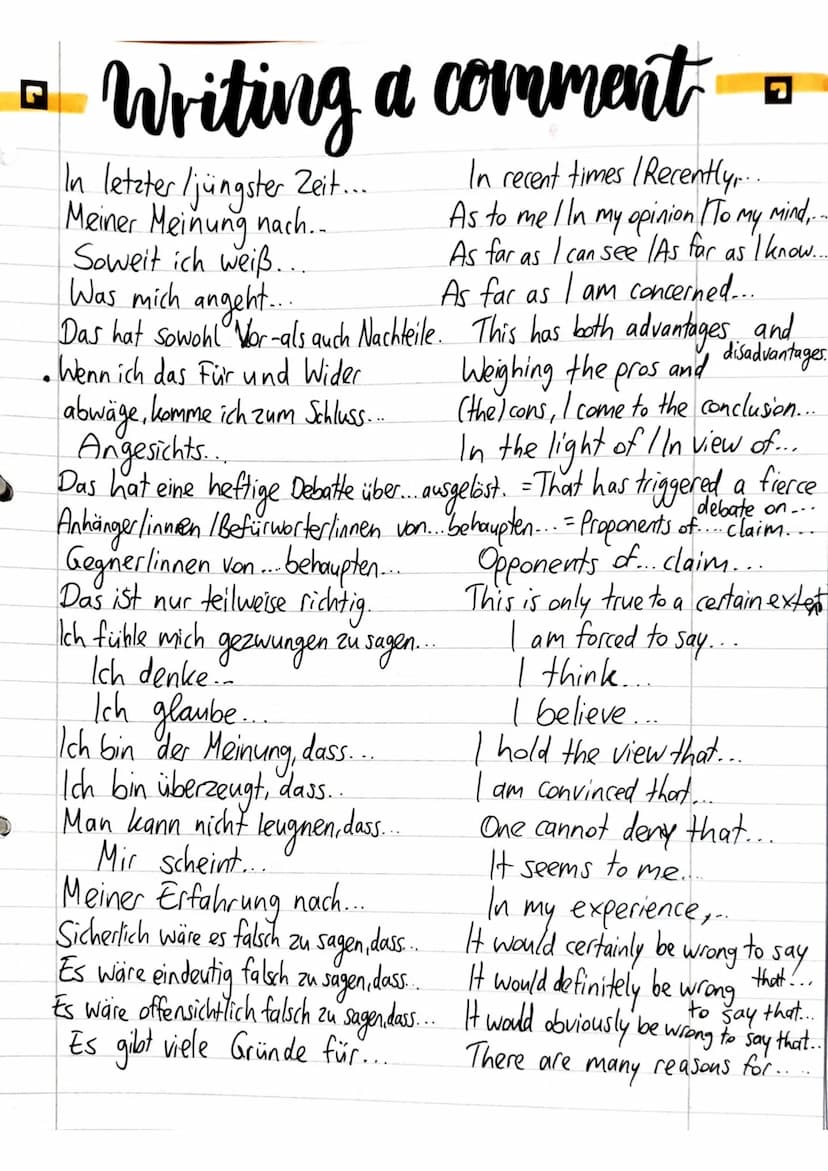 Writing a comment
In letzter/jüngster Zeit... In recent times / Recently,...
Meiner Meinung nach... As to me / In my opinion / To my mind,...
Soweit ich weiß... As far as I can see / As far as I know...
Was mich angeht... As far as I am concerned...
Das hat sowohl Vor-als auch Nachteile. This has both advantages and disadvantages.
Wenn ich das Für und Wider Weighing the pros and
abwäge, komme ich zum Schluss... (the) cons, I come to the conclusion...
Angesichts... In the light of / In view of...
Das hat eine heftige Debatte über... ausgelöst. = That has triggered a fierce debate on...
Anhänger/innen / Befürworter/innen von... behaupten... = Proponents of.... claim...
Gegner/innen von... behaupten... Opponents of... claim...
Das ist nur teilweise richtig. This is only true to a certain extent
Ich fühle mich gezwungen zu sagen... I am forced to say...
Ich denke... I think...
Ich glaube... I believe...
Ich bin der Meinung, dass... I hold the view that...
Ich bin überzeugt, dass... I am convinced that...
Man kann nicht leugnen, dass... One cannot deny that...
Mir scheint... It seems to me...
Meiner Erfahrung nach... In my experience,...
Sicherlich wäre es falsch zu sagen, dass... It would certainly be wrong to say that...
Es wäre eindeutig falsch zu sagen, dass... It would definitely be wrong to say that...
Es wäre offensichtlich falsch zu sagen, dass... It would obviously be wrong to say that...
Es gibt viele Gründe für... There are many reasons for.....